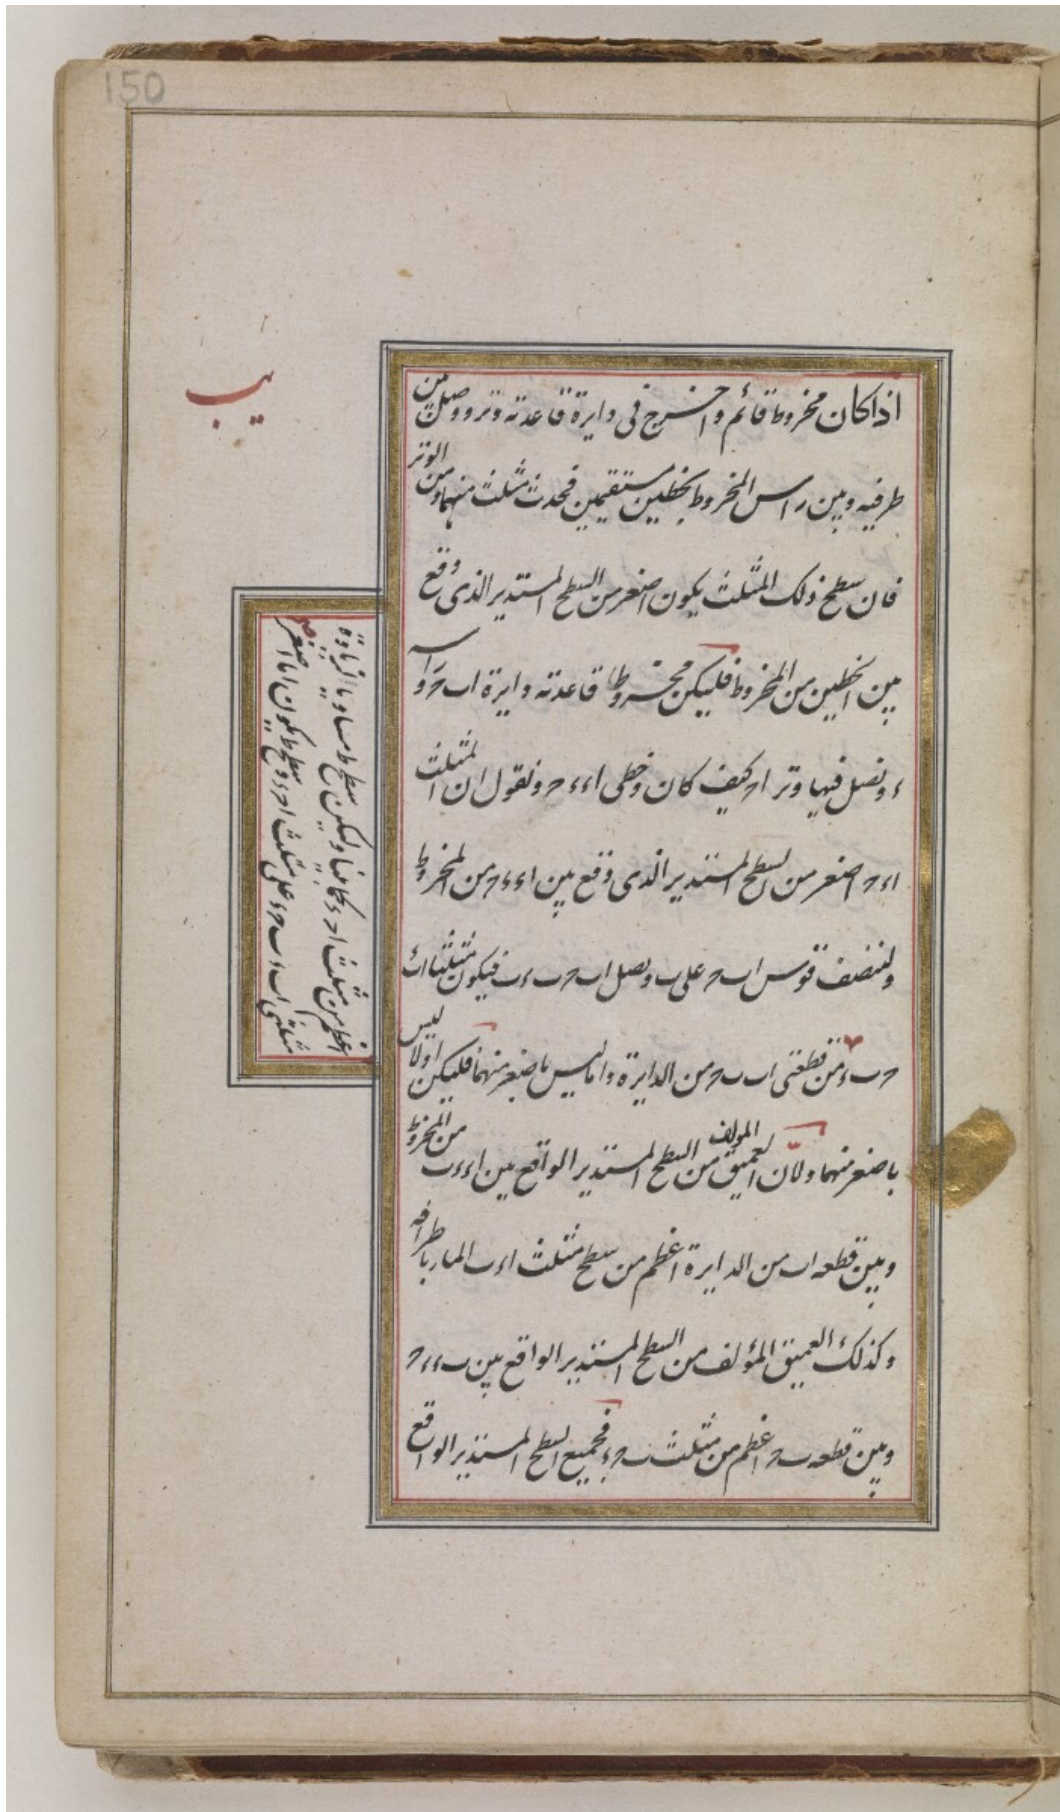 150
يب
اذا كان مخروط قائم واخرج فى دايرة قاعدته وتر ووصل بين
طرفيه وبين راس المخروط بخطين مستقيمين فحدث مثلث منهما ومن الوتر
فان سطح ذلك المثلث يكون اصغر من السطح المستدير الذى وقع
بين الخطين من المخروط فليكن مخروطا قاعدته دايرة اب ح وراسه
ء ونصل فيها وتر اح كيف كان وخطى اء ء ح ونقول ان المثلث
اء ح اصغر من السطح المستدير الذى وقع بين اء ء ح من المخروط
ولننصف قوس اب ح على ب ونصل اب ح ب ء ب فيكون مثلثا اء ب
ح ب ء من قطعتى اب ب ح من الدايرة واما ليس باصغر منهما فليكن اولا ليس
باصغر منهما ولان العميق المولف من السطح المستدير الواقع بين اء ء ب من المخروط
وبين قطعه اب من الدايرة اعظم من سطح مثلث اء ب المار باطرافه
وكذلك العميق المؤلف من السطح المستدير الواقع بين ب ء ء ح
وبين قطعه ب ح اعظم من مثلث ب ح ء فجميع السطح المستدير الواقع
مثلثى اب ء ب ح ء على مثلث اح ء وسطح ط يكون اما اصغر
اعظم من مثلث اح ء وليكن سطح ط مساويا لزيادة